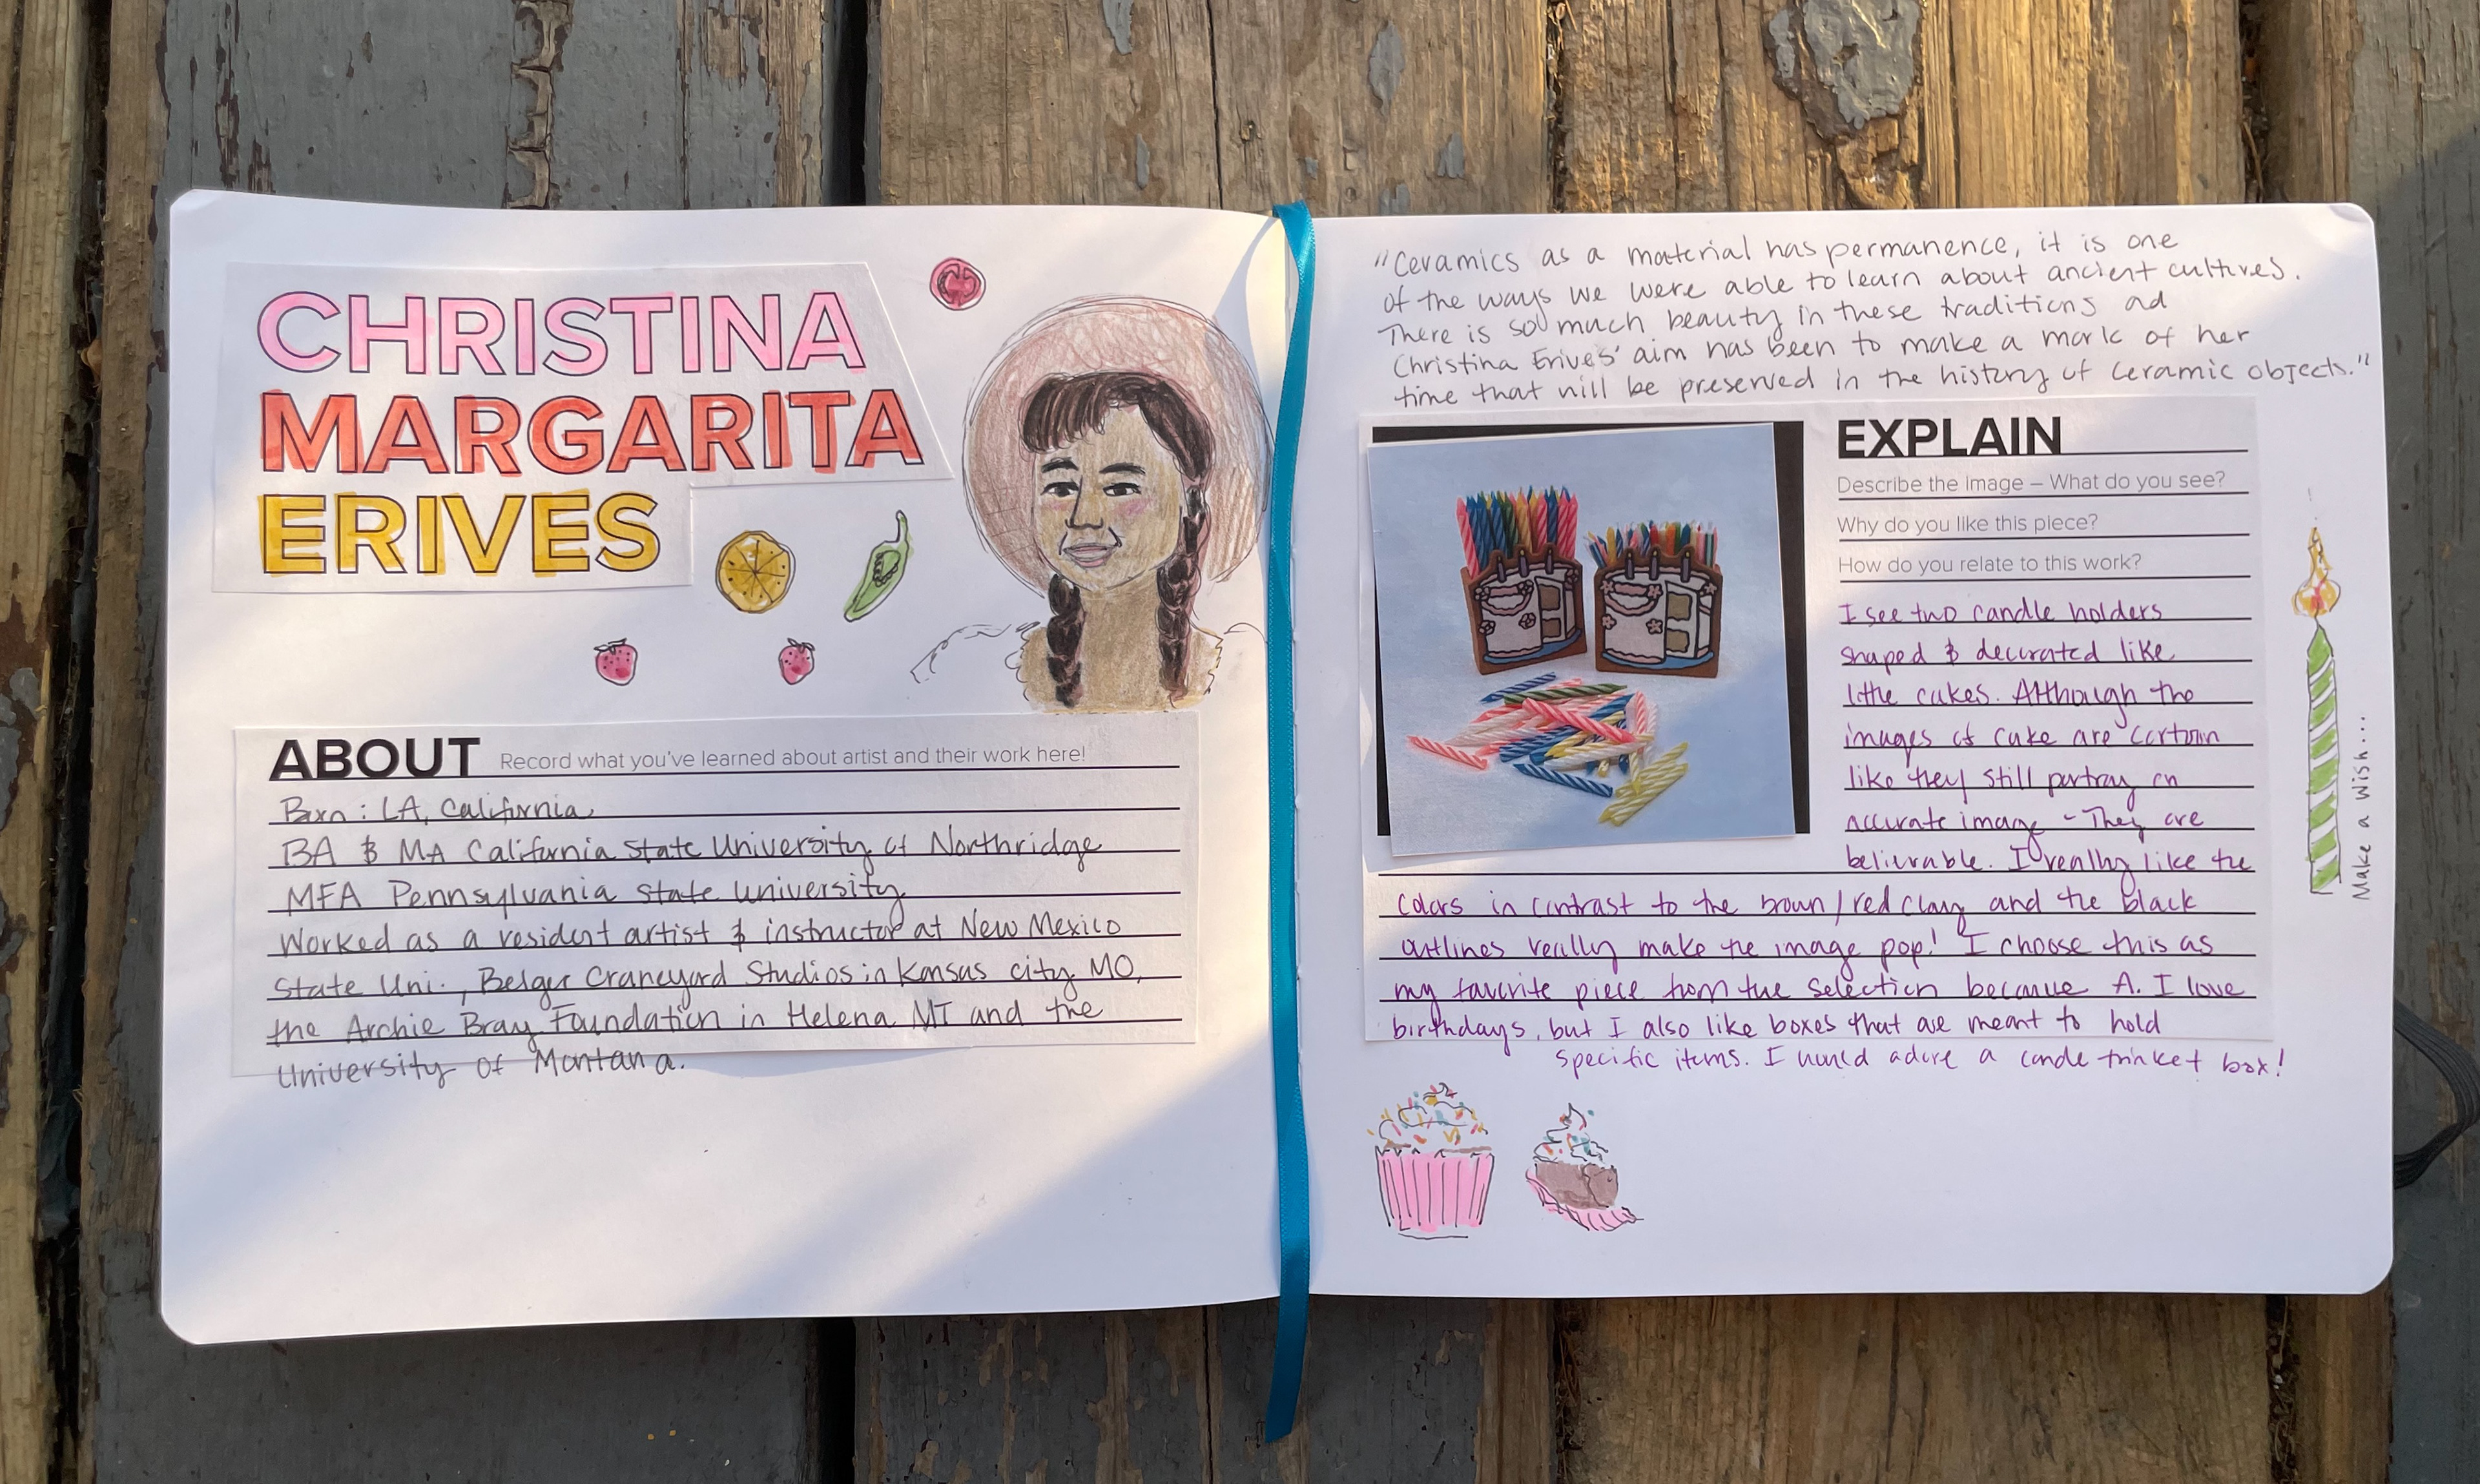 CHRISTINA
MARGARITA
ERIVES
ABOUT Record what you've learned about artist and their work here!
Born: LA, California
BA & MA California State University of Northridge
MFA Pennsylvania State University
Worked as a resident artist & instructor at New Mexico
State Uni., Belger Craneyard Studios in Kansas City MO,
the Archie Bray Foundation in Helena MT and the
University of Montana.
"Ceramics as a material has permanence, it is one
of the ways we were able to learn about ancient cultures.
There is so much beauty in these traditions ad
Christina Erives' aim has been to make a mark of her
time that will be preserved in the history of ceramic objects."
EXPLAIN
Describe the image – What do you see?
Why do you like this piece?
How do you relate to this work?
I see two candle holders
shaped & decorated like
little cakes. Although the
images of cake are cartoon
like they still portray an
accurate image - They are
believable. I really like the
colors in contrast to the brown/red clay and the black
outlines really make the image pop! I choose this as
my favorite piece from the selection because A. I love
birthdays, but I also like boxes that are meant to hold
specific items. I would adore a candle trinket box!
Make a wish...